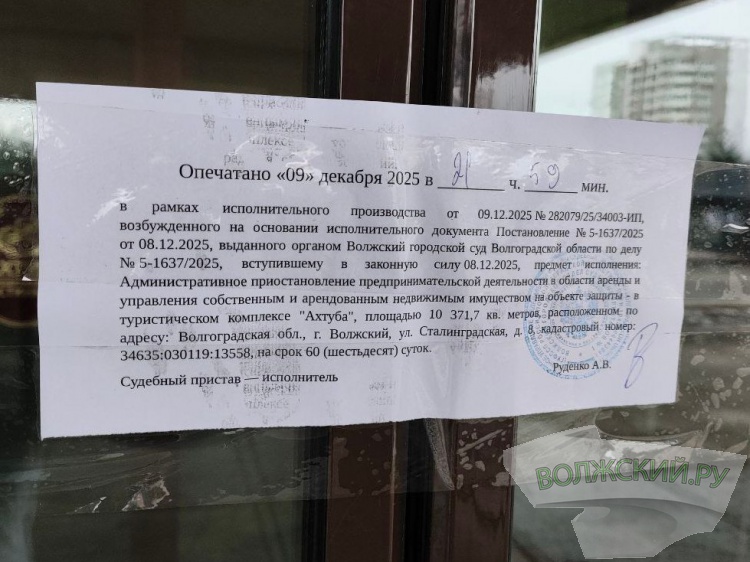 Опечатано «09» декабря 2025 в 21 ч. 59 мин.
в рамках исполнительного производства от 09.12.2025 № 282079/25/34003-ИП,
возбужденного на основании исполнительного документа Постановление № 5-1637/2025
от 08.12.2025, выданного органом Волжский городской суд Волгоградской области по делу
№ 5-1637/2025, вступившему в законную силу 08.12.2025, предмет исполнения:
Административное приостановление предпринимательской деятельности в области аренды и
управления собственным и арендованным недвижимым имуществом на объекте защиты - в
туристическом комплексе "Ахтуба", площадью 10 371,7 кв. метров, расположенном по
адресу: Волгоградская обл., г. Волжский, ул. Сталинградская, д. 8, кадастровый номер:
34635:030119:13558, на срок 60 (шестьдесят) суток.
Судебный пристав — исполнитель
Руденко А.В.
ВОЛЖСКИЙ.РУ